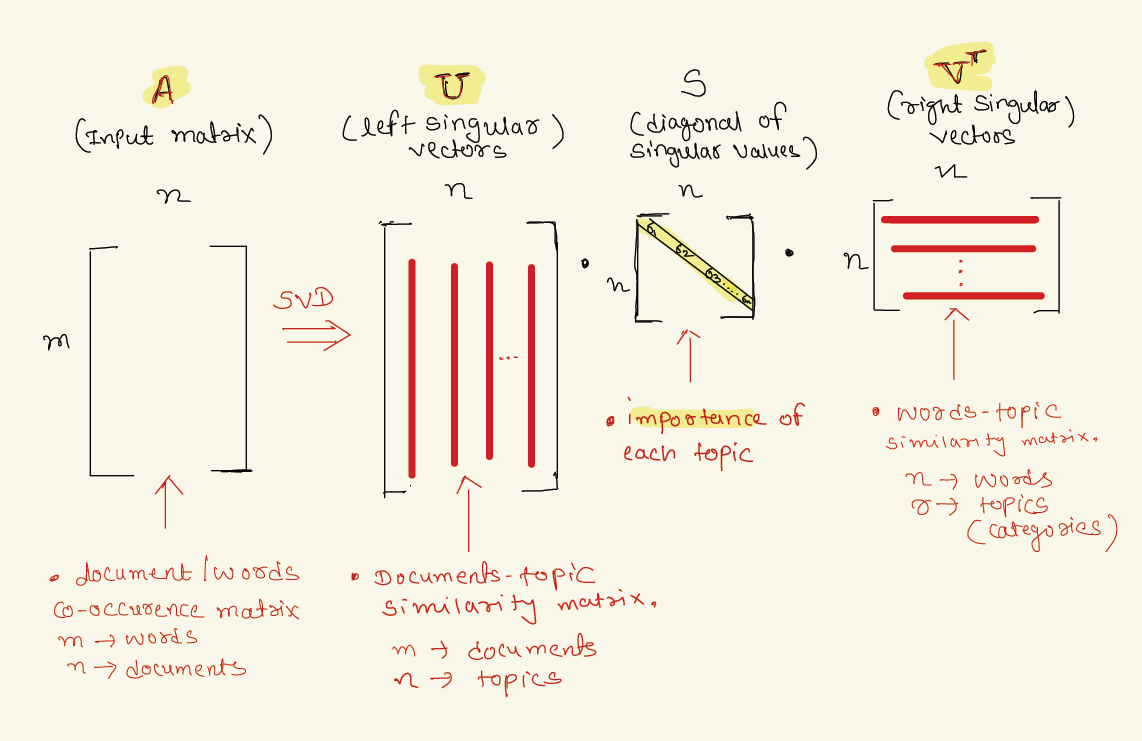 A
(Input matrix)
n
m
SVD
U
(left singular)
vectors
n
...
S
(diagonal of
singular values)
n
n
σ1 σ2 σ3 .... σn
V^T
(right singular)
vectors
n
n
• document/words
co-occurence matrix
m → words
n → documents
• Documents-topic
similarity matrix.
m → documents
n → topics
• importance of
each topic
• words-topic
similarity matrix.
n → words
r → topics
(categories)